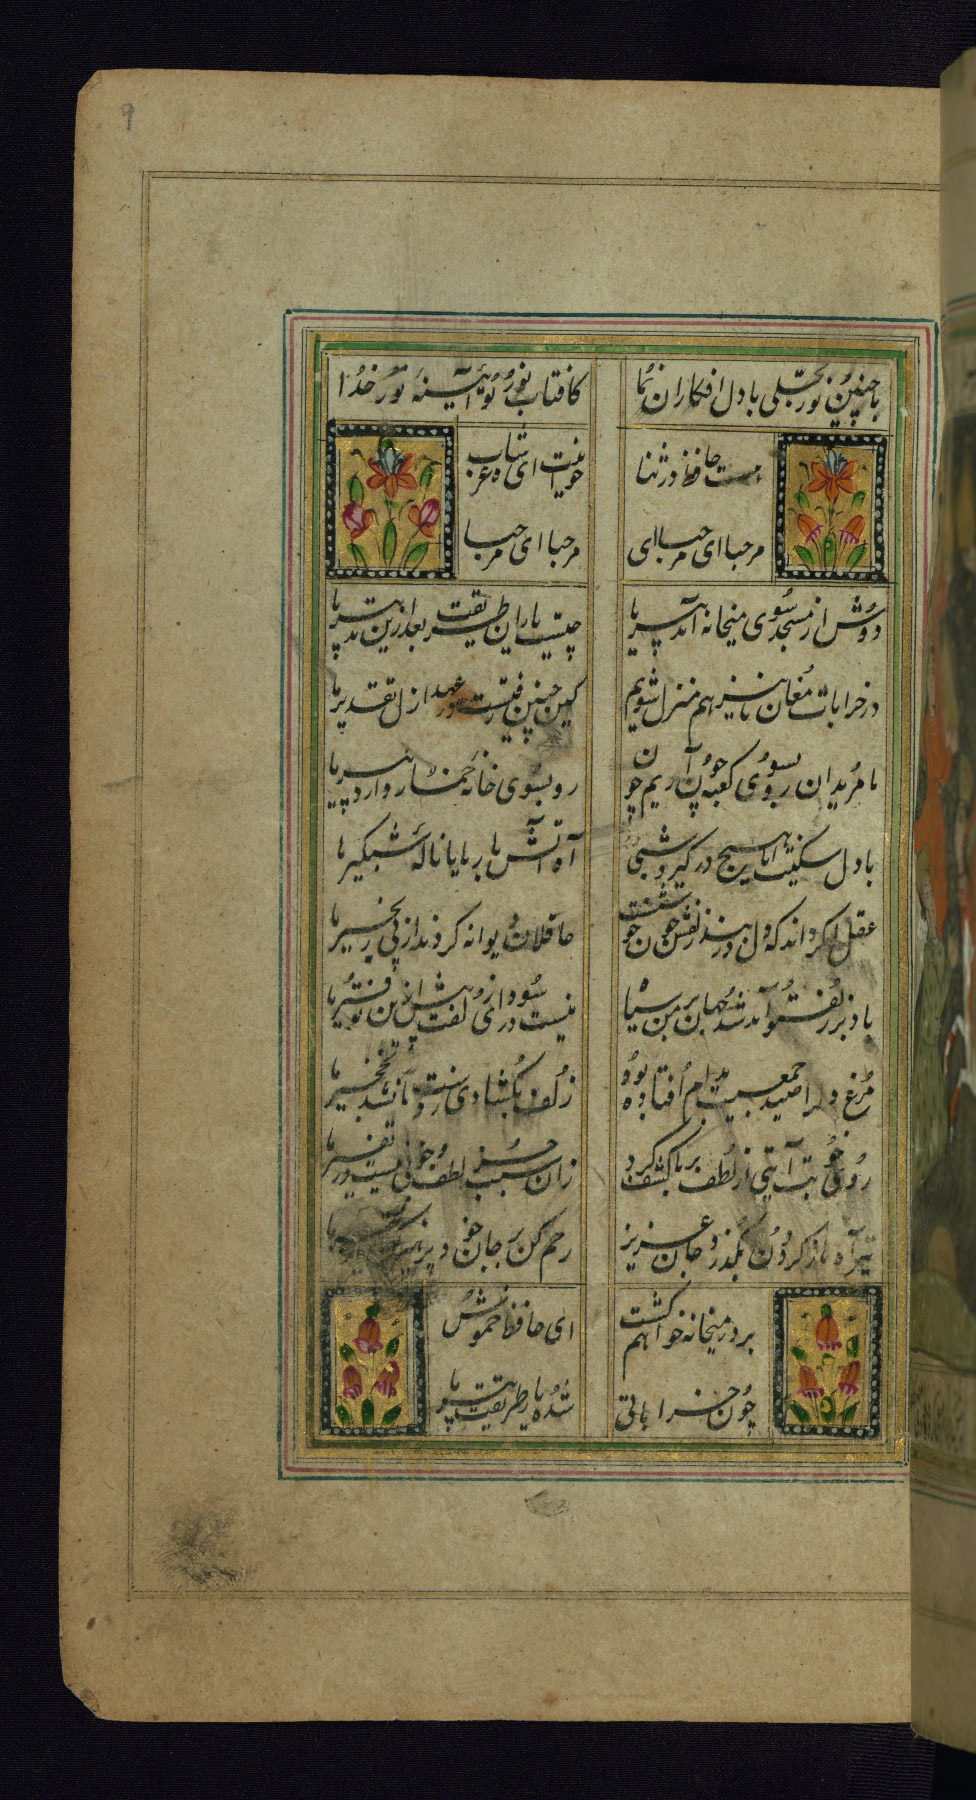 ۹
با چنین نور تجلی با دل افکاران نما
کافتاب نور تو آئینهٔ نور خدا
مست حافظ در ثنا
خوانیت ای شاه عرب
مرحبا ای مرحبا ای
مرحبا ای مرحبا
دوش از مسجد سوی میخانه آمد پیر ما
چیست یاران طریقت بعد ازین تدبیر ما
در خرابات مغان ما نیز هم منزل شویم
کین چنین رفتست در عهد ازل تقدیر ما
ما مریدان رو بسوی کعبه چون آریم چون
رو بسوی خانهٔ خمار دارد پیر ما
با دل سنگینت آیا هیچ درگیرد شبی
آه آتش بار ما یا نالهٔ شبگیر ما
عقل اگر داند که دل در بند زلفش چون خوشست
عاقلان دیوانه گردند از پی زنجیر ما
باد بر زلف تو آمد شد جهان بر من سیاه
نیست در سودای زلفت بیش ازین توفیر ما
مرغ دل را صید جمعیت بدام افتاده بود
زلف بگشادی ز دست و باز شد نخجیر ما
روی خوبت آیتی از لطف بر ما کشف کرد
زان سبب جز لطف و خوبی نیست در تفسیر ما
تیر آه ما ز گردون بگذرد جان عزیز
رحم کن بر جان خود پرهیز
بر در میخانه خواهم گشت
ای حافظ خموش
چون خراباتی
شده یار طریقت پیر ما